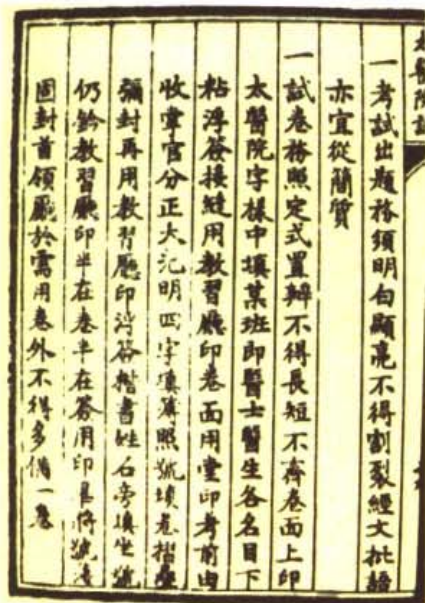 太醫院誌
一考試出題務須明白顯亮不得割裂經文批語
亦宜從簡質
一試卷務照定式置辦不得長短不齊卷面上印
太醫院字樣中填某班即醫士醫生各名目下
粘浮簽接縫用教習廳印卷面用堂印考前由
收掌官分正大光明四字填簿照號填卷摺疊
彌封再用教習廳印浮簽楷書姓名旁填坐號
仍鈐教習廳印半在卷半在簽用印畢將號簿
固封首領廳於需用卷外不得多備一卷